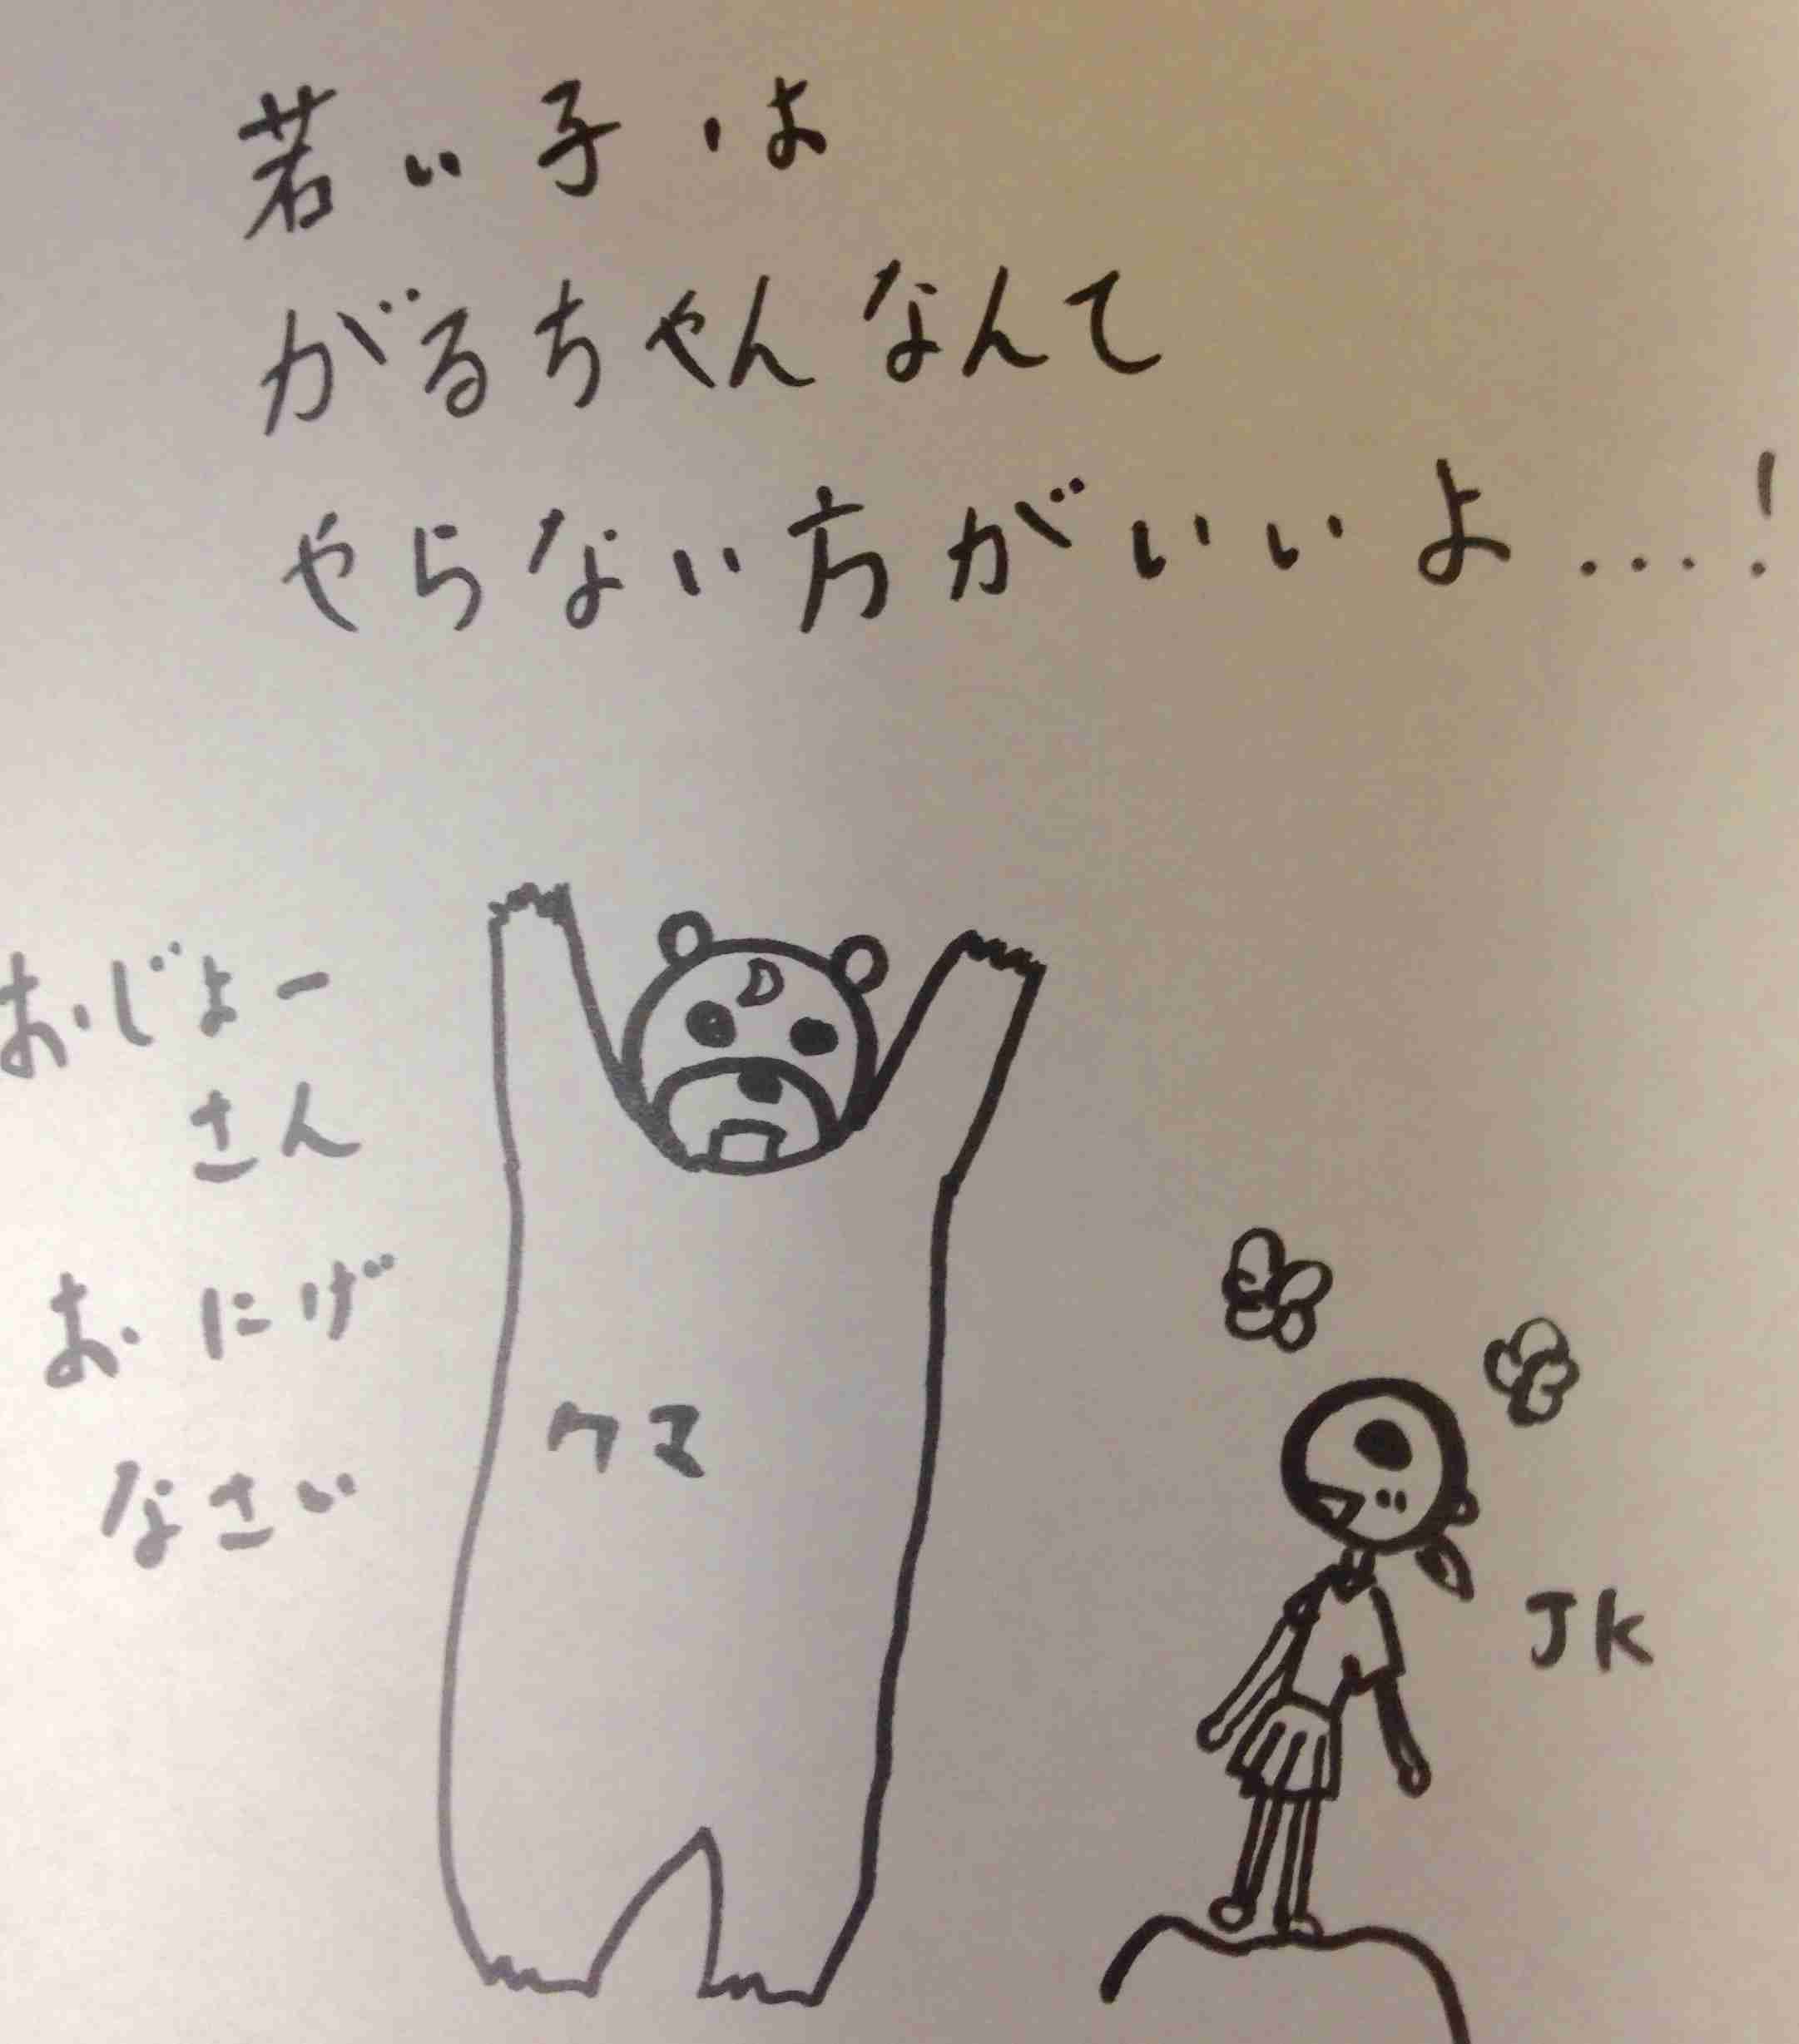 若い子は
がるちゃんなんて
やらない方がいいよ...!
おじょー
さん
おにげ
なさい
クマ
JK